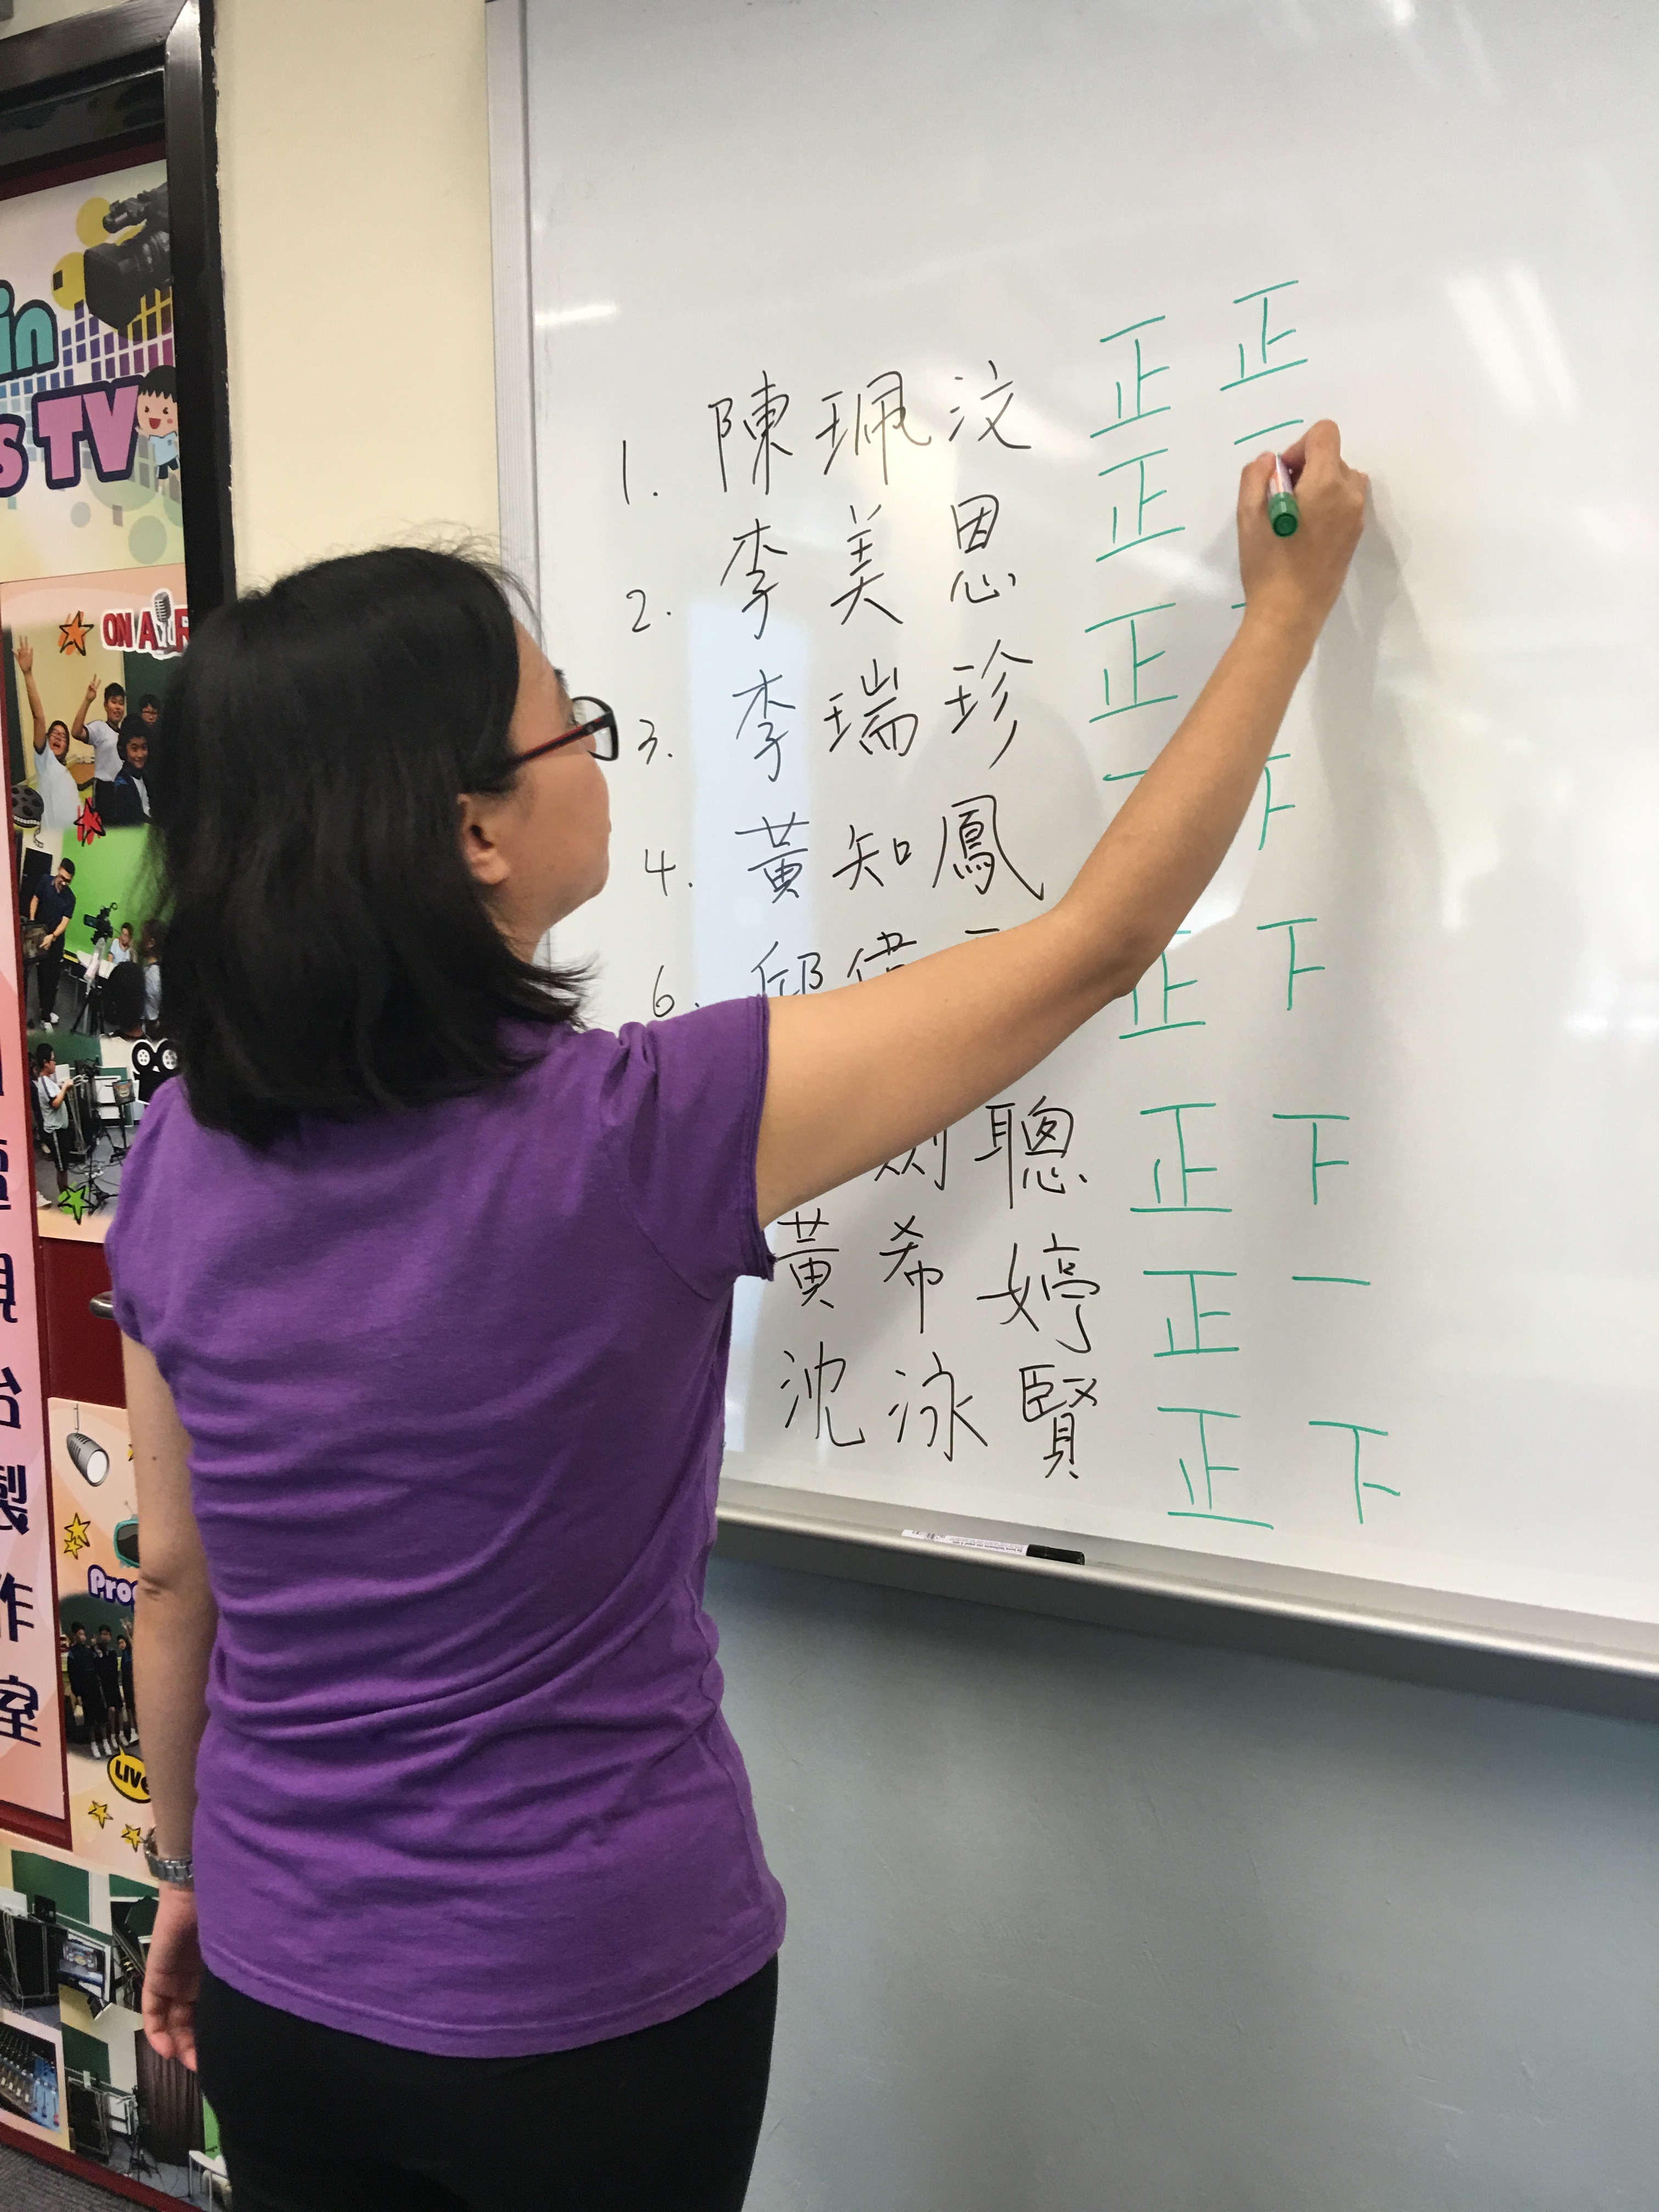 in
s TV
ON AIR
1. 陳珮汶 正 正
2. 李美恩 正 一
3. 李瑞珍 正
4. 黃知鳳
6. 邱偉 正 下
聰 正 下
黃希婷 正 一
沈泳賢 正 下
視
台
製
作
室
LIVE